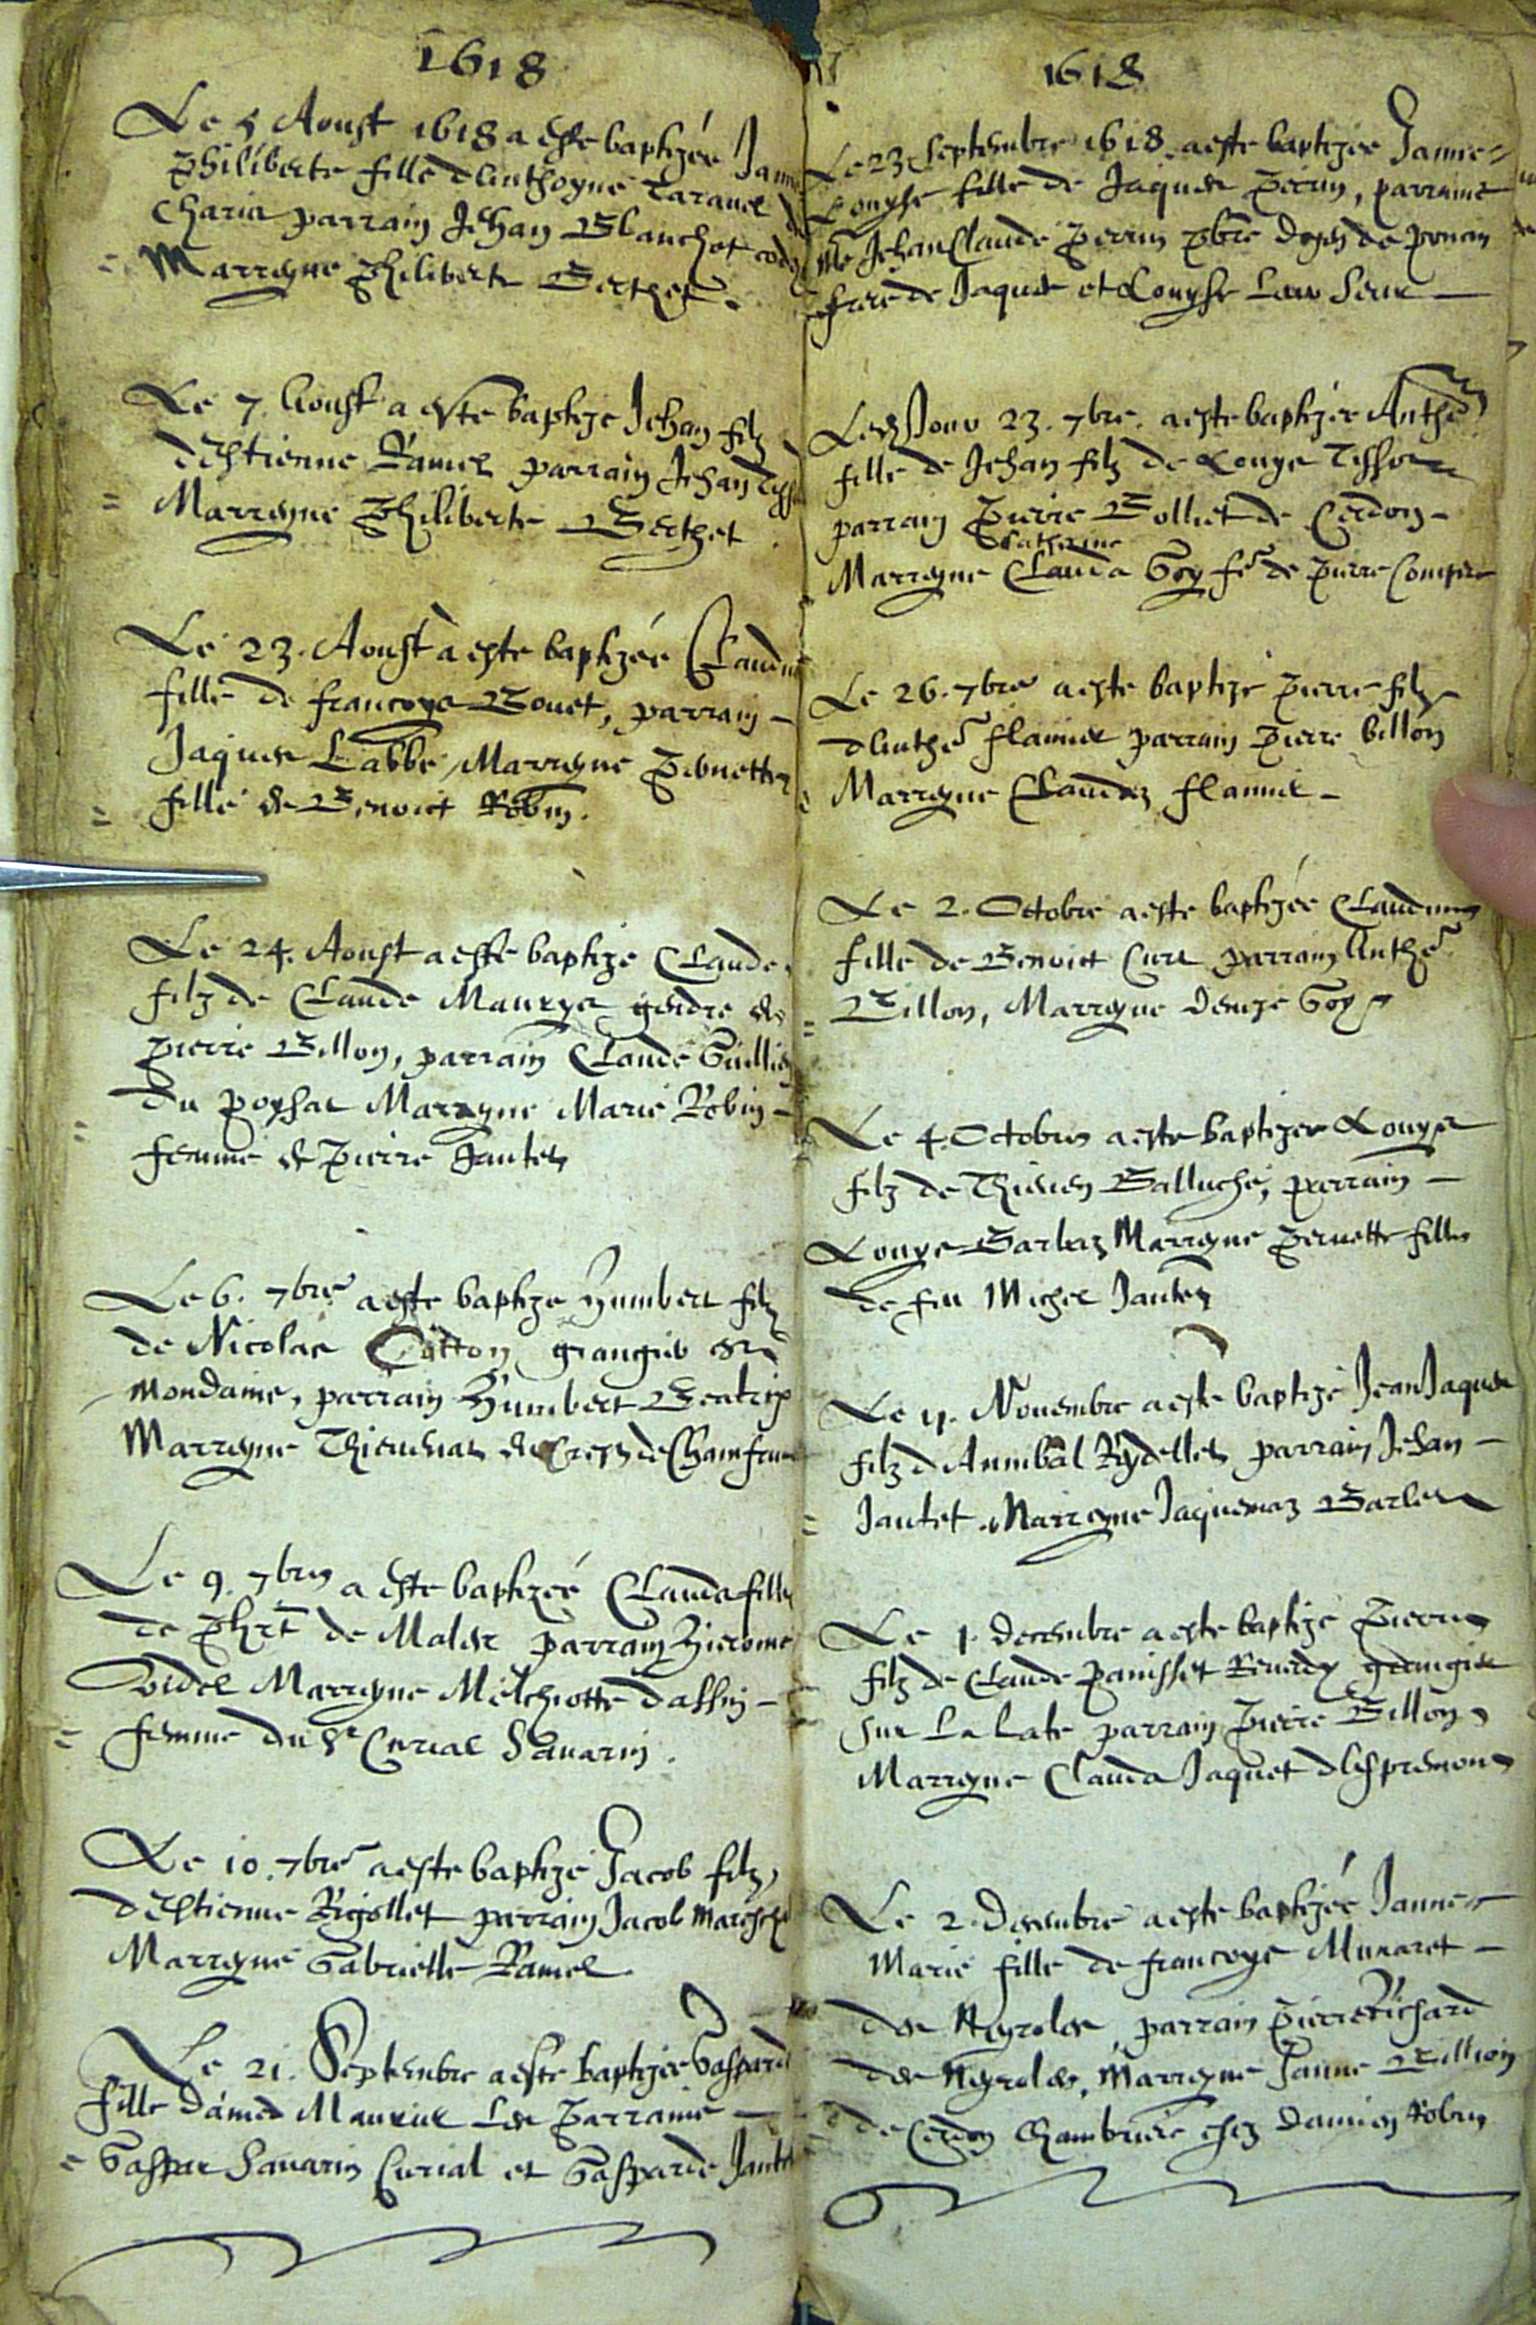 1618
Le 5 Aoust 1618 a este baptizée Janne
Philiberte fille d'Anthoyne Taravel
Charia parrain Jehan Blanchet
Marreyne Philiberte Berthet.
Le 7. Aoust a este baptize Jehan filz
d'Estienne Ramel parrain Jehan
Marreyne Philiberte Berthet
Le 23. Aoust a este baptizée Claudi
fille de francoys Bouet, parrain
Jaques Labbe, Marreyne Pernette
fille de Benoict Robin.
Le 24. Aoust a este baptize Claude
filz de Claude Maurys gendre de
Pierre Billon, parrain Claude Guillie
du poysat Marreyne Marie Robin
femme de Pierre Jantet
Le 6. 7bre a este baptize Humbert filz
de Nicolas Cotton grangier
Mondaine, parrain Humbert Beatrix
Marreyne Thieuenas de Chamfr
Le 9. 7bre a este baptizeé Clauda fille
de de Malar parrain Hierome
Videl Marreyne Melchiotte dassin
femme du Sr Curial Sauarin.
Le 10. 7bre a este baptizé Jacob filz
d'Estienne Rigollet parrain Jacob Mareschal
Marreyne Gabrielle Ramel.
Le 21. Septembre a este baptizee Gaspard
fille damed Maurier Les Parrains
Gaspar Sauarin Curial et Gasparde Jantet
1618
Le 23 Septembre 1618. a este baptizee Janne
Louyse fille de Jaques Perrin, parrains
Mre Jehan Claude Perrin pbre
frere de Jaques et Louyse
Led Jour 23. 7bre. a este baptizée Anthe
fille de Jehan filz de Louys Tissot
parrain Pierre Bolliet de Cerdon
Catherine
Marreyne Clauda Goy fe de Pierre Compere
Le 26. 7bre a este baptizé Pierre filz
d'Anthe flamier parrain Pierre billon
Marreyne Claudaz flamier
Le 2. Octobre a este baptizée Claudine
fille de Benoict Curt parrain Anthe
Billon, Marreyne Denize Goy
Le 4. Octobre a este baptizee Louys
filz de Thieuen Balluche, parrain
Louys Barlez Marreyne Pernette fille
de feu Michel Jantet
Le 11. Novembre a este baptizé Jean Jaques
filz d'Annibal Rydellet parrain Jehan
Jantet. Marreyne Jaquemaz Barlet
Le 1. Decembre a este baptizé Pierre
filz de Claude Panisset grangier
sur La Late parrain Pierre Billon
Marreyne Clauda Jaquet
Le 2. Decembre a este baptizée Janne
Marie fille de francoys Munaret
des Neyroles parrain Pierre Richard
des Neyroles, Marreyne Janne Billion
de Cerdon Chambriere chez Damien Robin